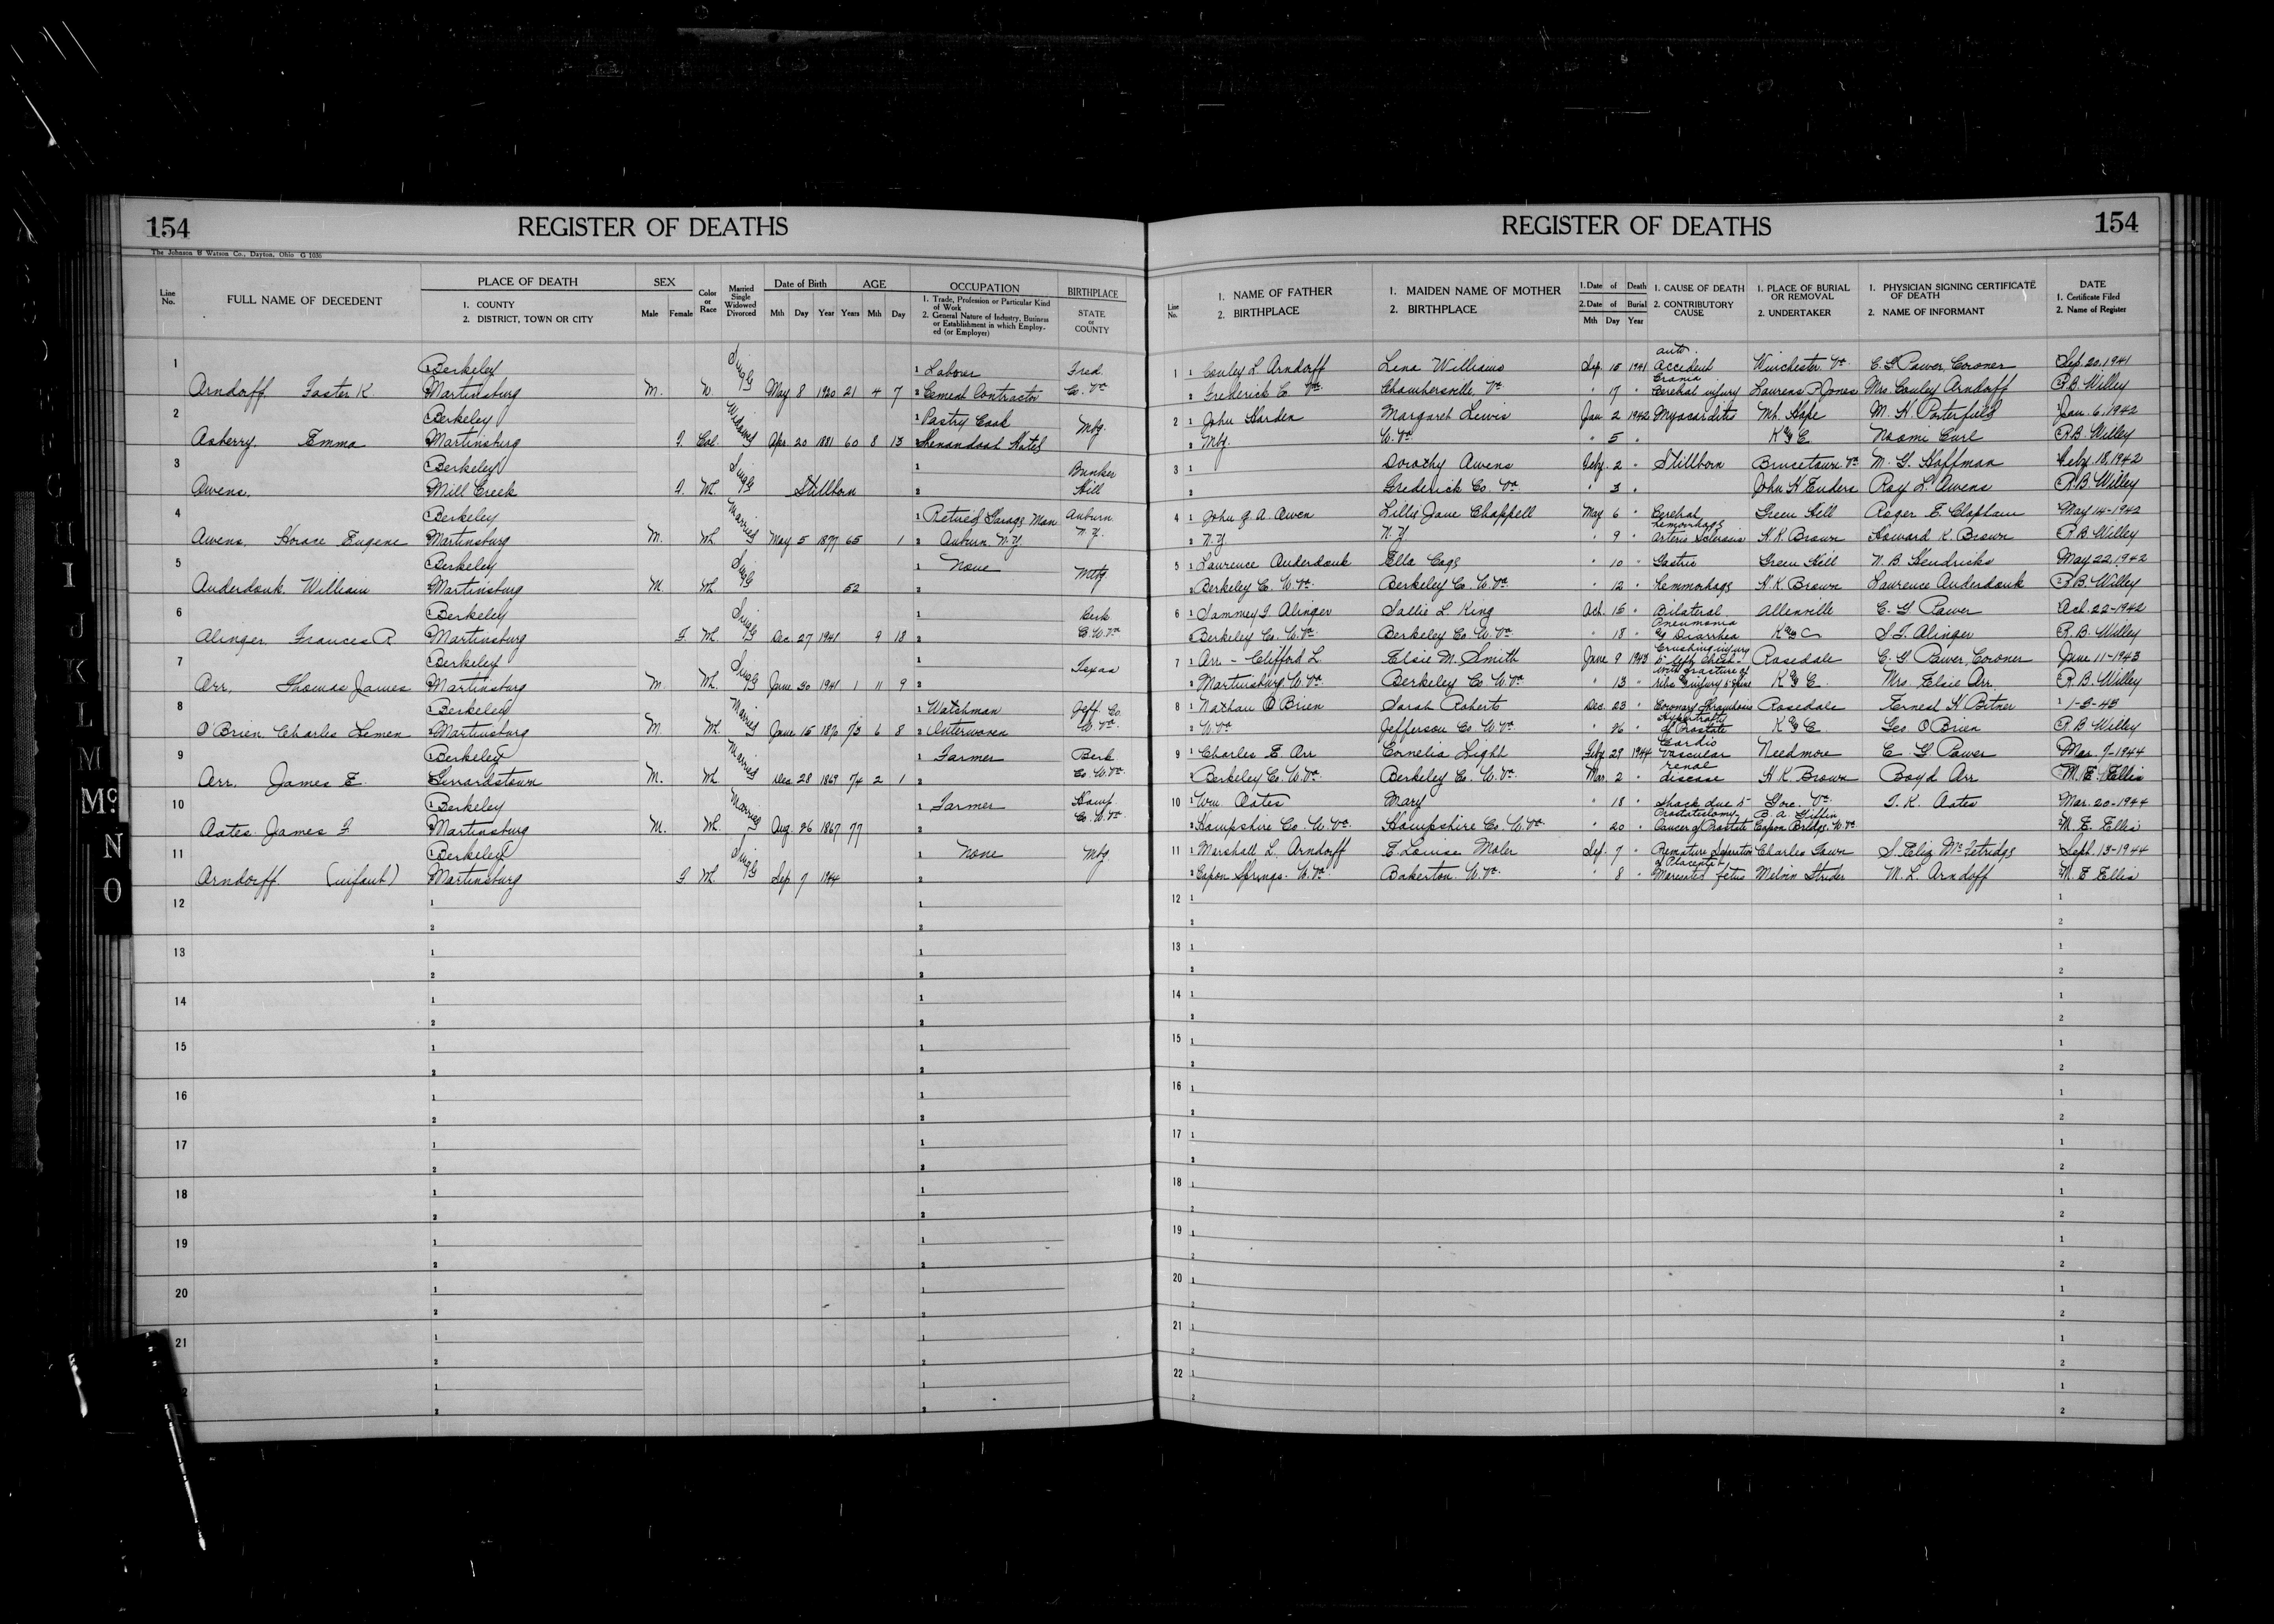 154 REGISTER OF DEATHS
The Johnson & Watson Co., Dayton, Ohio G 1035
Line No.
FULL NAME OF DECEDENT
PLACE OF DEATH
1. COUNTY
2. DISTRICT, TOWN OR CITY
SEX
Male Female
Color or Race
Married Single Widowed Divorced
Date of Birth
Mth Day Year
AGE
Years Mth Day
OCCUPATION
1. Trade, Profession or Particular Kind of Work
2. General Nature of Industry, Business or Establishment in which Employed (or Employer)
BIRTHPLACE
STATE or COUNTY
1 Berkeley Single 1 Labour Fred.
Arndorff, Foster K Martinsburg M. W. May 8 1920 21 4 7 2 Cement Contractor Co. Va
2 Berkeley Widowed 1 Pastry Cook Mbg.
Asberry, Emma Martinsburg F. Col. Apr. 20 1881 60 8 13 2 Shenandoah Hotel
3 Berkeley Single 1 Bunker
Owens, Mill Creek F. Wh. Stillborn 2 Hill
4 Berkeley Married 1 Retired Garage Man Auburn
Owens, Horace Eugene Martinsburg M. Wh. May 5 1877 65 1 2 Auburn N.Y. N.Y.
5 Berkeley Single 1 None
Onderdonk William Martinsburg M. Wh 62 2
6 Berkeley Single 1 Berk
Olinger Frances R Martinsburg F Wh. Dec 27 1941 9 18 2 Co W.Va
7 Berkeley Single 1 Texas
Orr, Thomas James Martinsburg M. Wh. June 30 1941 1 11 9 2
8 Berkeley Married 1 Watchman Jeff. Co.
O'Brien Charles Lemen Martinsburg M. Wh. June 15 1870 73 6 8 2 Interwoven W.Va.
9 Berkeley Married 1 Farmer Berk
Orr. James E. Gerardstown M. Wh. Dec 28 1869 74 2 1 2 Co. W.Va.
10 Berkeley Married 1 Farmer Hamp.
Oates James F. Martinsburg M. Wh. Aug. 26 1867 77 2 Co. W.Va.
11 Berkeley Single 1 None Mbg
Arndorff (infant) Martinsburg F Wh. Sep 7 1944 2
12
13
14
15
16
17
18
19
20
21
REGISTER OF DEATHS 154
Line No.
1. NAME OF FATHER
2. BIRTHPLACE
1. MAIDEN NAME OF MOTHER
2. BIRTHPLACE
1. Date of Death
2. Date of Burial
Mth Day Year
1. CAUSE OF DEATH
2. CONTRIBUTORY CAUSE
1. PLACE OF BURIAL OR REMOVAL
2. UNDERTAKER
1. PHYSICIAN SIGNING CERTIFICATE OF DEATH
2. NAME OF INFORMANT
DATE
1. Certificate Filed
2. Name of Register
1 1 Conley L Arndorff Lena Williams Sep. 15 1941 auto. Accident Winchester Va. C. G Power, Coroner Sep. 20, 1941
2 Frederick C Va. Chambersville, Va " 17 " Crania Cerebral injury Laurens P Jones Mrs Conley Arndorff R.B. Willey
2 1 John Harden Margaret Lewis Jan 2 1942 Myocarditis Mt. Hope M. H. Porterfield Jan. 6, 1942
2 Mbg. W.Va " 5 " K & C Naomi Curl R.B. Willey
3 1 Dorothy Owens Feby. 2 " Stillborn Brucetown Va M. G. Hoffman Feby 18, 1942
2 Frederick Co. Va " 3 " John H Enders Roy L. Owens R.B. Willey
4 1 John Q. A. Owen Lillie Jane Chappell May 6 " Cerebral hemorrhage Green Hill Roger E. Clapham May 14-1942
2 N.Y N.Y " 9 " Arterio Sclerosis H. K. Brown Howard K. Brown R.B. Willey
5 1 Laurence Onderdonk Ella Cage " 10 " Gastric Green Hill N. B. Hendricks May 22, 1942
2 Berkeley C. W.Va. Berkeley C. W.Va. " 12 " Hemmorhage H. K. Brown Laurence Onderdonk R.B. Willey
6 1 Sammey F Olinger Sallie L King Oct. 15 " Bilateral Pneumonia Allenville C. G Power Oct. 22-1942
2 Berkeley Co. W.Va. Berkeley Co W.Va. " 18 " Diarrhea K & C S. F. Olinger R. B. Willey
7 1 Orr - Clifford L. Elsie M. Smith June 9 1943 Crushing injury to left chest - with fracture of Rosedale C. G Power, Coroner June 11-1943
2 Martinsburg W.Va. Berkeley Co W.Va " 13 " ribs & injury to spine K & C. Mrs. Elsie Orr. R.B. Willey
8 1 Nathan O Brien Sarah Roberts Dec. 23 " Coronary Thrombosis Rosedale Forrest H Bitner 1-5-43
2 W.Va Jefferson Co W.Va " 26 " Hypertrofy of Prostate K & C. Geo O'Brien R B. Willey
9 1 Charles E. Orr Cornelia Light Feby. 29 1944 Cardio vascular Needmore C. G Power Mar. 7-1944
2 Berkeley C. W.Va. Berkeley C. W.Va. Mar. 2 " renal disease H K Brown Boyd Orr M. E. Ellis
10 1 Wm Oates Mary " 18 " Shock due to Prostatectomy Gore. Va. T. K. Oates Mar. 20-1944
2 Hampshire Co. W.Va. Hampshire Co. W.Va. " 20 " Cancer of Prostate B. A. Giffin Capon Bridge, W.Va. M. E. Ellis
11 1 Marshall L. Arndorff E. Louise Moler Sep. 7 " Premature Separation of Placenta Charles Town S. Eliz McFetridge Sept. 13-1944
2 Capon Springs. W.Va. Bakerton. W.Va. " 8 " fetus Melvin Strider M. L. Arndoff M. E Ellis
12
13
14
15
16
17
18
19
20
21
22
G
H
I
J
K
L
M
Mc
N
O